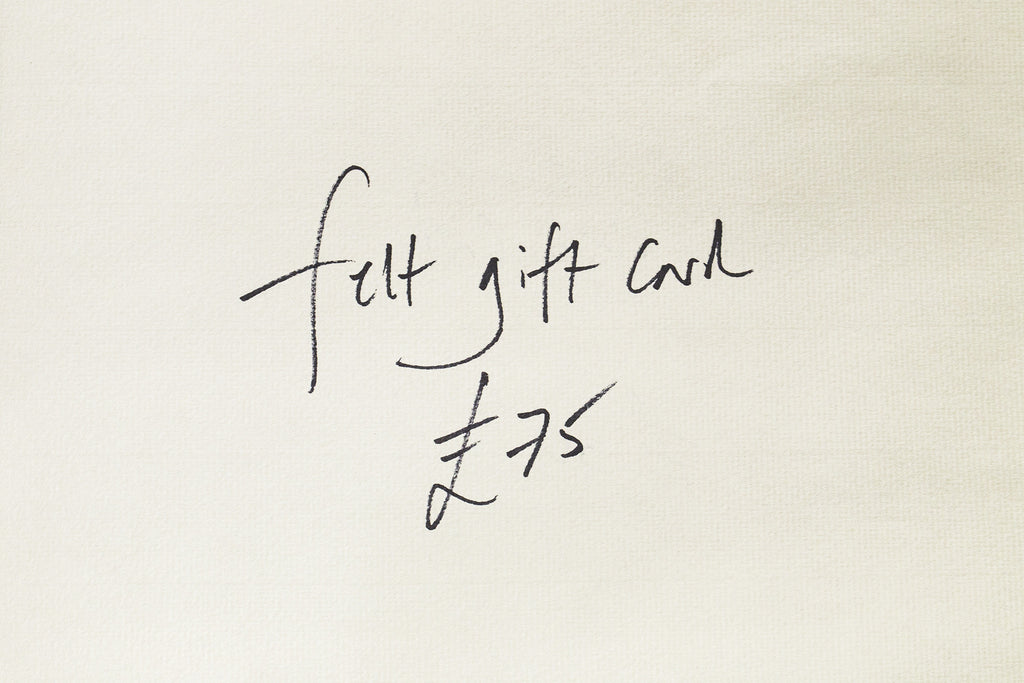 felt gift card
£75